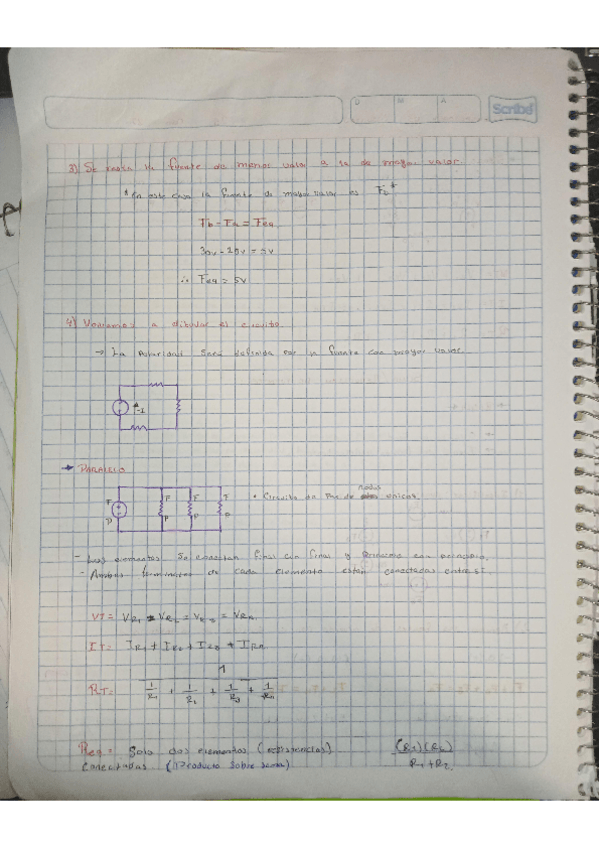 D M A
Scribe
3) Se resta la fuente de menor valor a la de mayor valor.
* En este caso la fuente de mayor valor es Fb*
Fb - Fa = Feq
- = 5v
∴ Feq = 5v
4) Volvemos a dibujar el circuito.
→ La polaridad será definida por la fuente con mayor valor.
→ PARALELO
F F F F
• Circuito de Par de nodos únicos.
P P P P
- Los elementos se conectan final con final y principio con principio.
- Ambas terminales de cada elemento están conectadas entre sí
VT = VR1 = VR2 = VR3 = VRn
IT = IR1 + IR2 + IR3 + IRn
1
RT = 1/R1 + 1/R2 + 1/R3 + 1/Rn
Req = Solo dos elementos (resistencias) (R1)(R2)
Conectadas (Producto sobre suma) R1+R2